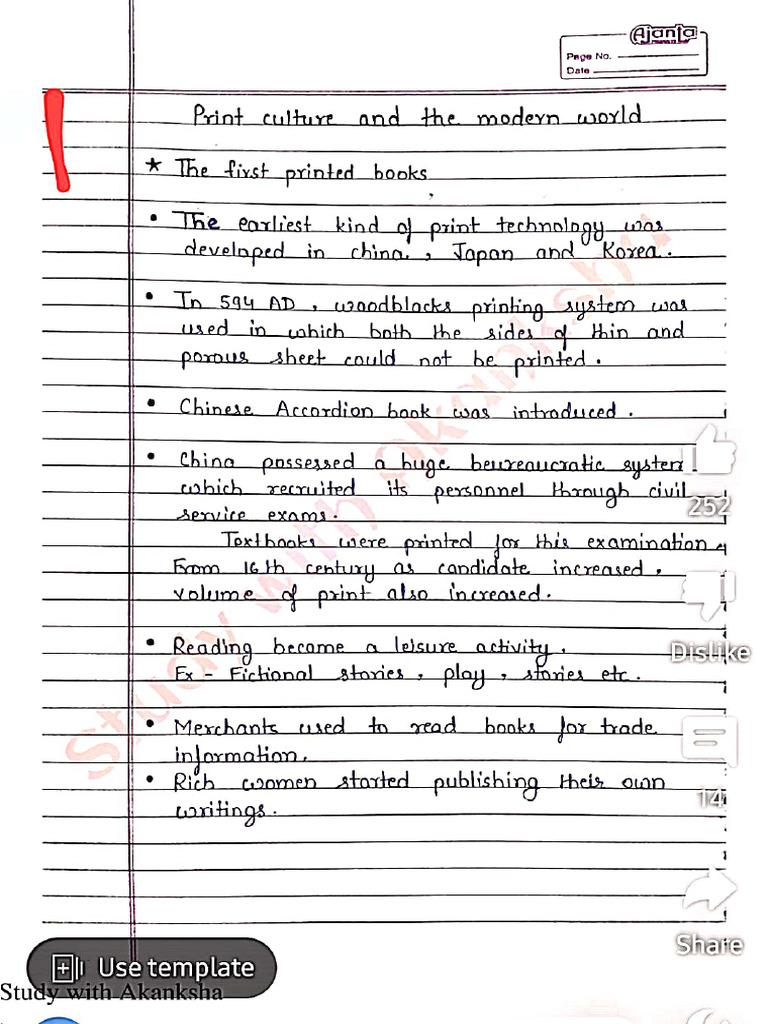 Ajanta
Page No.
Date
Print culture and the modern world
★ The first printed books
• The earliest kind of print technology was
developed in china, Japan and Korea.
• In 594 AD, woodblocks printing system was
used in which both the sides of thin and
porous sheet could not be printed.
• Chinese Accordion book was introduced.
• China possessed a huge beureaucratic system
which recruited its personnel through civil
252
service exams.
Textbooks were printed for this examination
From 16th century as candidate increased,
volume of print also increased.
• Reading became a leisure activity.
Dislike
Ex - Fictional stories, play, stories etc.
• Merchants used to read books for trade
information.
• Rich women started publishing their own
14
writings.
Study with Akankshu
Share
Use template
Study with Akanksha